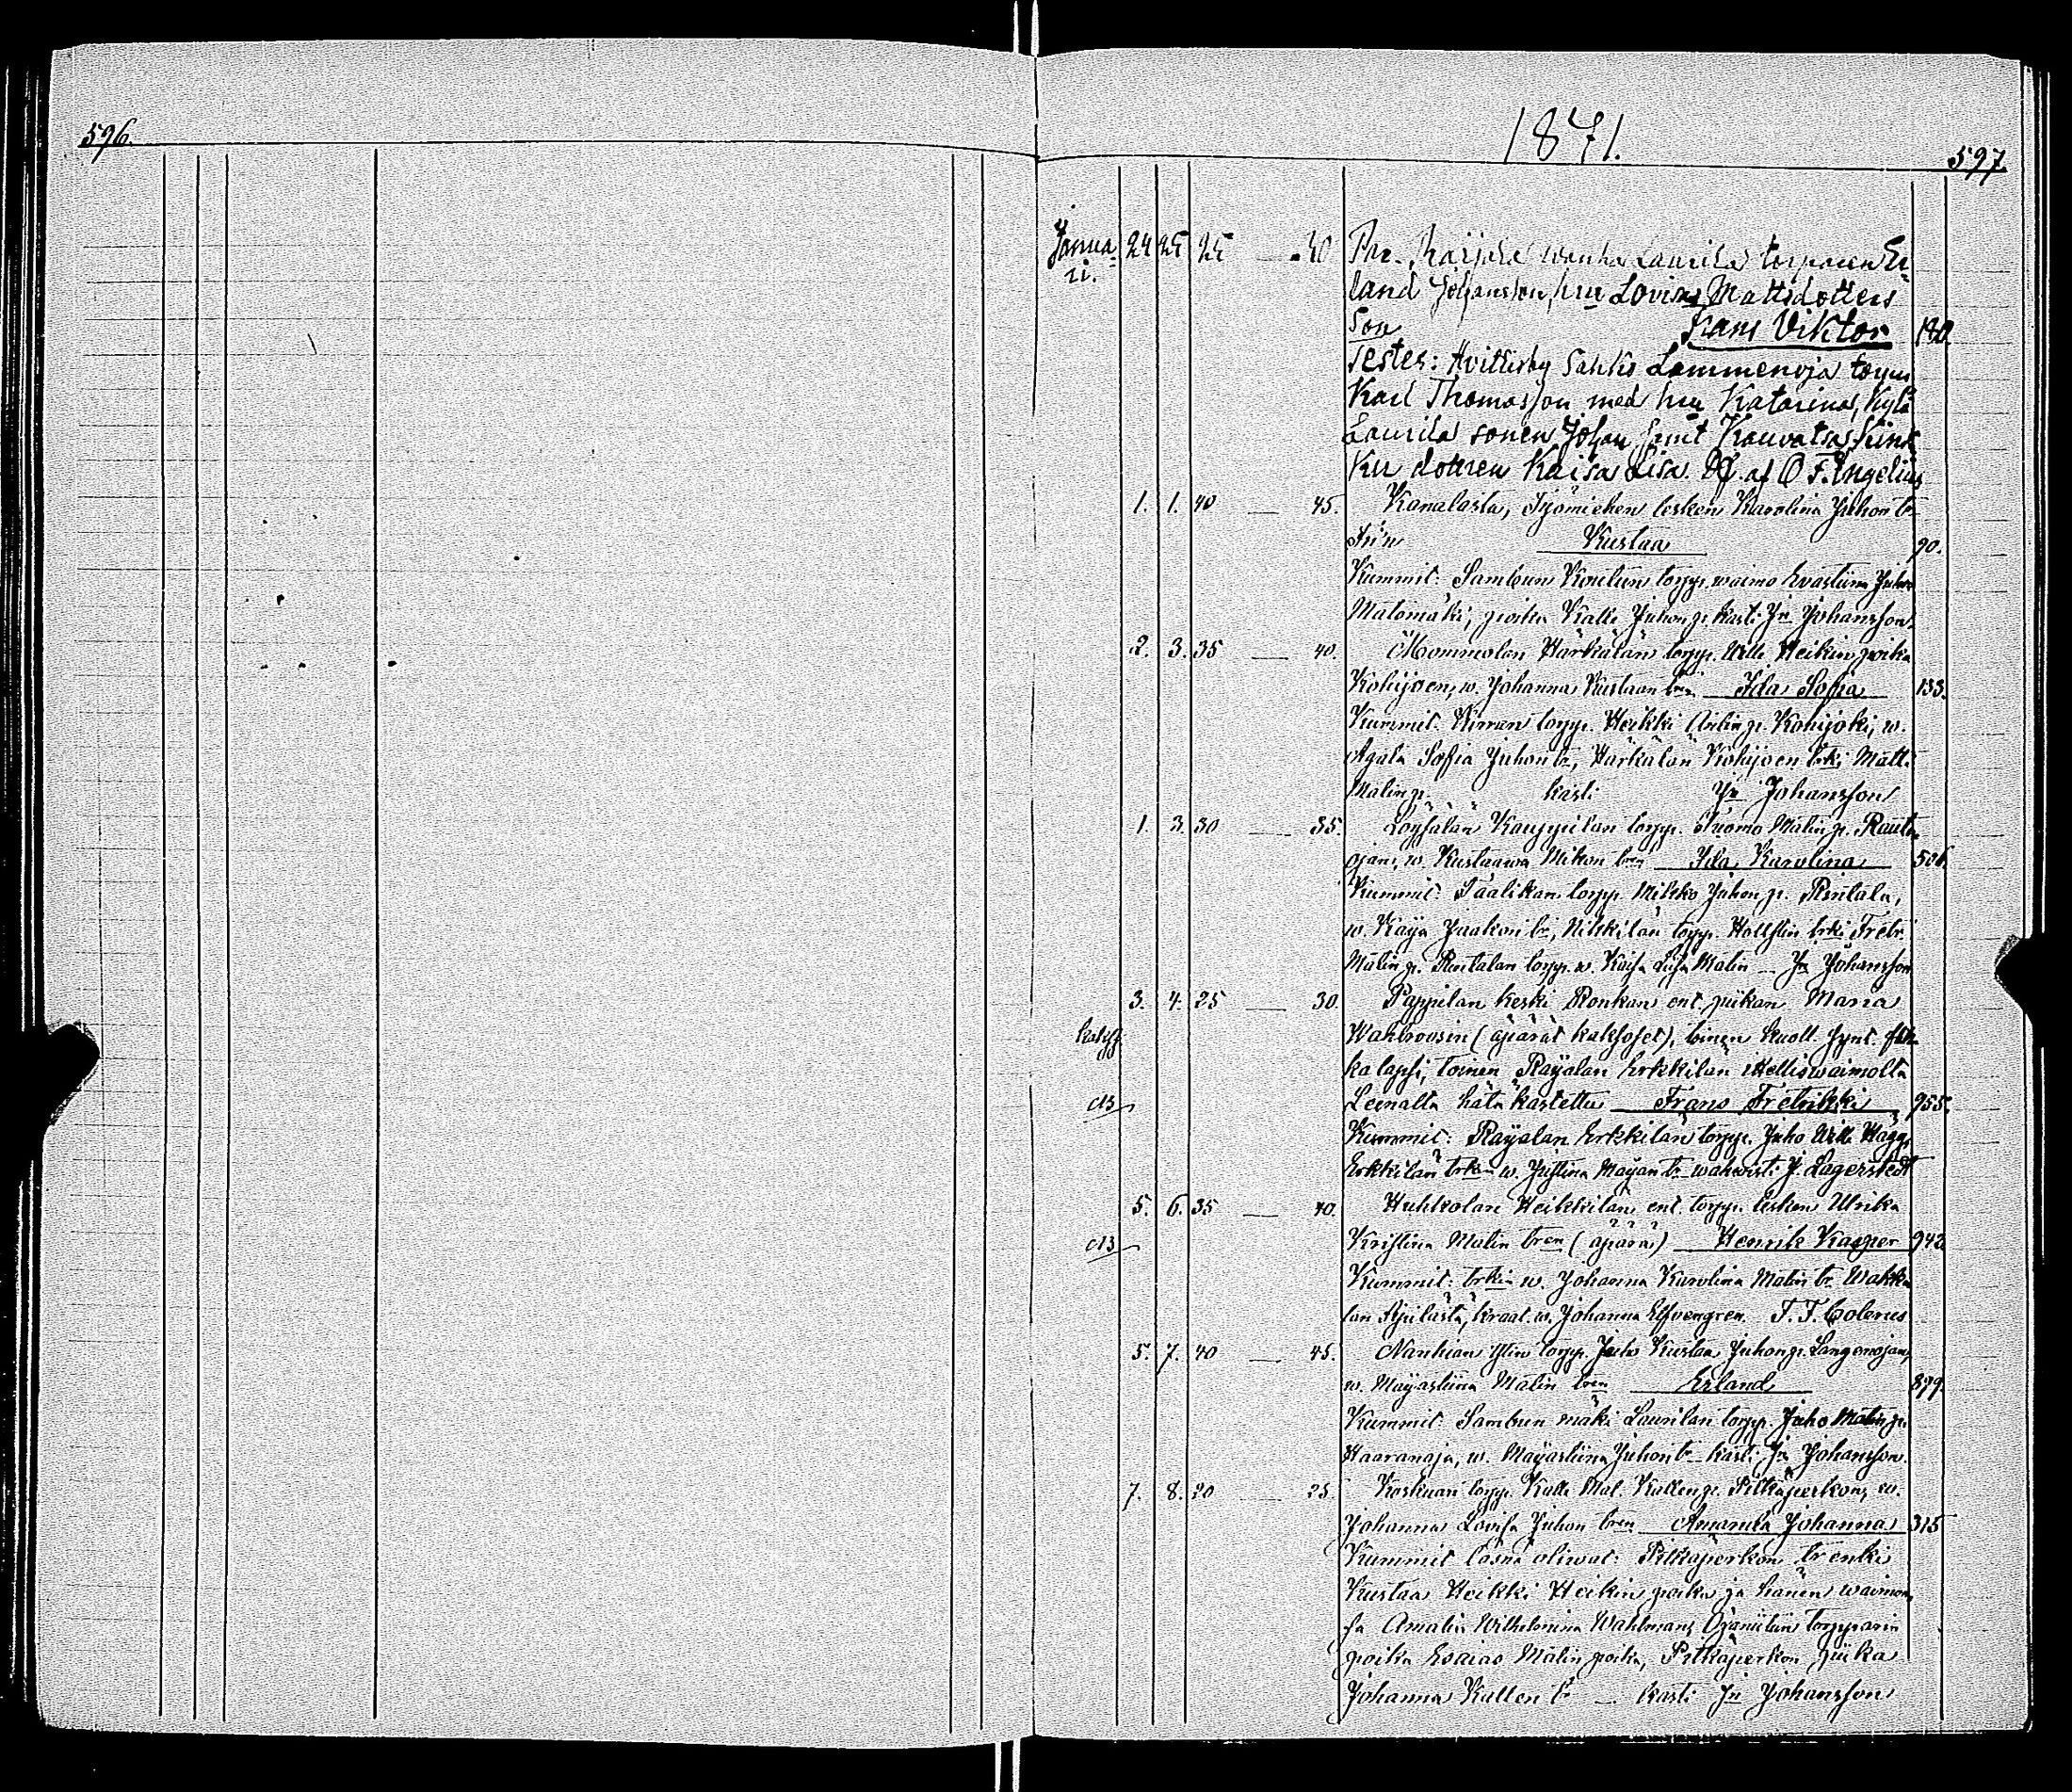 596.
1871.
597.
Janua-
ri. 24 25 25 — 40 Par. Karjala wanha Laurila torparen Er-
land Johansson, hru Lovisa Mattsdotters
Son Frans Viktor 180.
Testes: Hvittisby Sahko Lammenoja torp.
Karl Thomasson med hru Katarina, Kylä
Laurila sonen Johan samt Kauvatsa
dottren Kaisa Lisa. Df. af O F. Ingelius
1. 1. 40 — 45. Kanalasta, Työmiehen lesken Karolina Juhon tr
Kustaa 90.
Kummit: Sambun Koulun torpp. waimo Evastiina Juho
Matomäki, poika Kalle Juhon p. kasti Jn Johansson.
2. 3. 35 — 40. Mommolan Härkälän torpp. Wille Heikin poika
Kohijoen, w. Johanna Kustaan tren Ida Sofia 133.
Kummit. torpp. Heikki Antin p. Kohijoki, w.
Agata Sofia Juhon tr, Härkälän Kohijoen trki Matti
Matin p. kasti Jn Johansson
1. 3. 30 — 35. Löysälän Kauppilan torpp. Tuomo Matin p. Rauta-
ojan, w. Kustaawa Mikon tren Ida Karolina 506.
Kummit: Säälikan torpp. Mikko Juhon p. Rintala,
w. Kaija Jaakon tr, Nikkilän torpp. Hollstin trki Fretr.
Matin p. Rintalan torpp. w. Kaisa Liisa Matin — Jn Johansson
3. 4. 25 — 30. Pappilan keski Ronkan ent. piikan Maria
kakss. Wahlroosin (äpärät kaksoset), toinen kuoll. synt.
ka lapsi, toinen Raijalan Erkkilän Hellis waimolta
NB Leenalta hätäkastettu Frans Fretrikki 955.
Kummit: Raijalan Erkkilän torpp. Juho Wille Hägg,
Erkkilän trkin w. Justina Maijan tr wahwisti J. Lagerstedt
5. 6. 35 — 40. Huhkolan Heikkilän ent. torpp. lesken Ulrika
NB Kristina Matin tren (äpärä) Henrik Kasper 942
Kummit: trkin w. Johanna Karolina Matin tr. Wakka-
lan Äpilästä, kraat. w. Johanna Elfvengren. F. F. Colerus
5. 7. 40 — 45. Nanhian Yltin torpp. Juho Kustaa Juhon p. Langenojan,
w. Maijastiina Matin tren Erland 879.
Kummit: Sambun mäki Laurilan torpp. Juho Matin p.
Haaranoja, w. Maijastiina Juhon tr kasti Jn Johansson.
7. 8. 20 — 25. Koskuan torpp. Kalle Mat. Kallen p. Pitkäperkon, w.
Johanna Lovisa Juhon tren Amanda Johanna 315
Kummit läsnä oliwat: Pitkäperkon trenki
Kustaa Heikki Heikin poika ja hänen waimon-
sa Amalia Wilhelmina Wahlman, Ojaniitun torpparin
poika Esaias Matin poika, Pitkäperkon piika
Johanna Kallen tr — kasti Jn Johansson